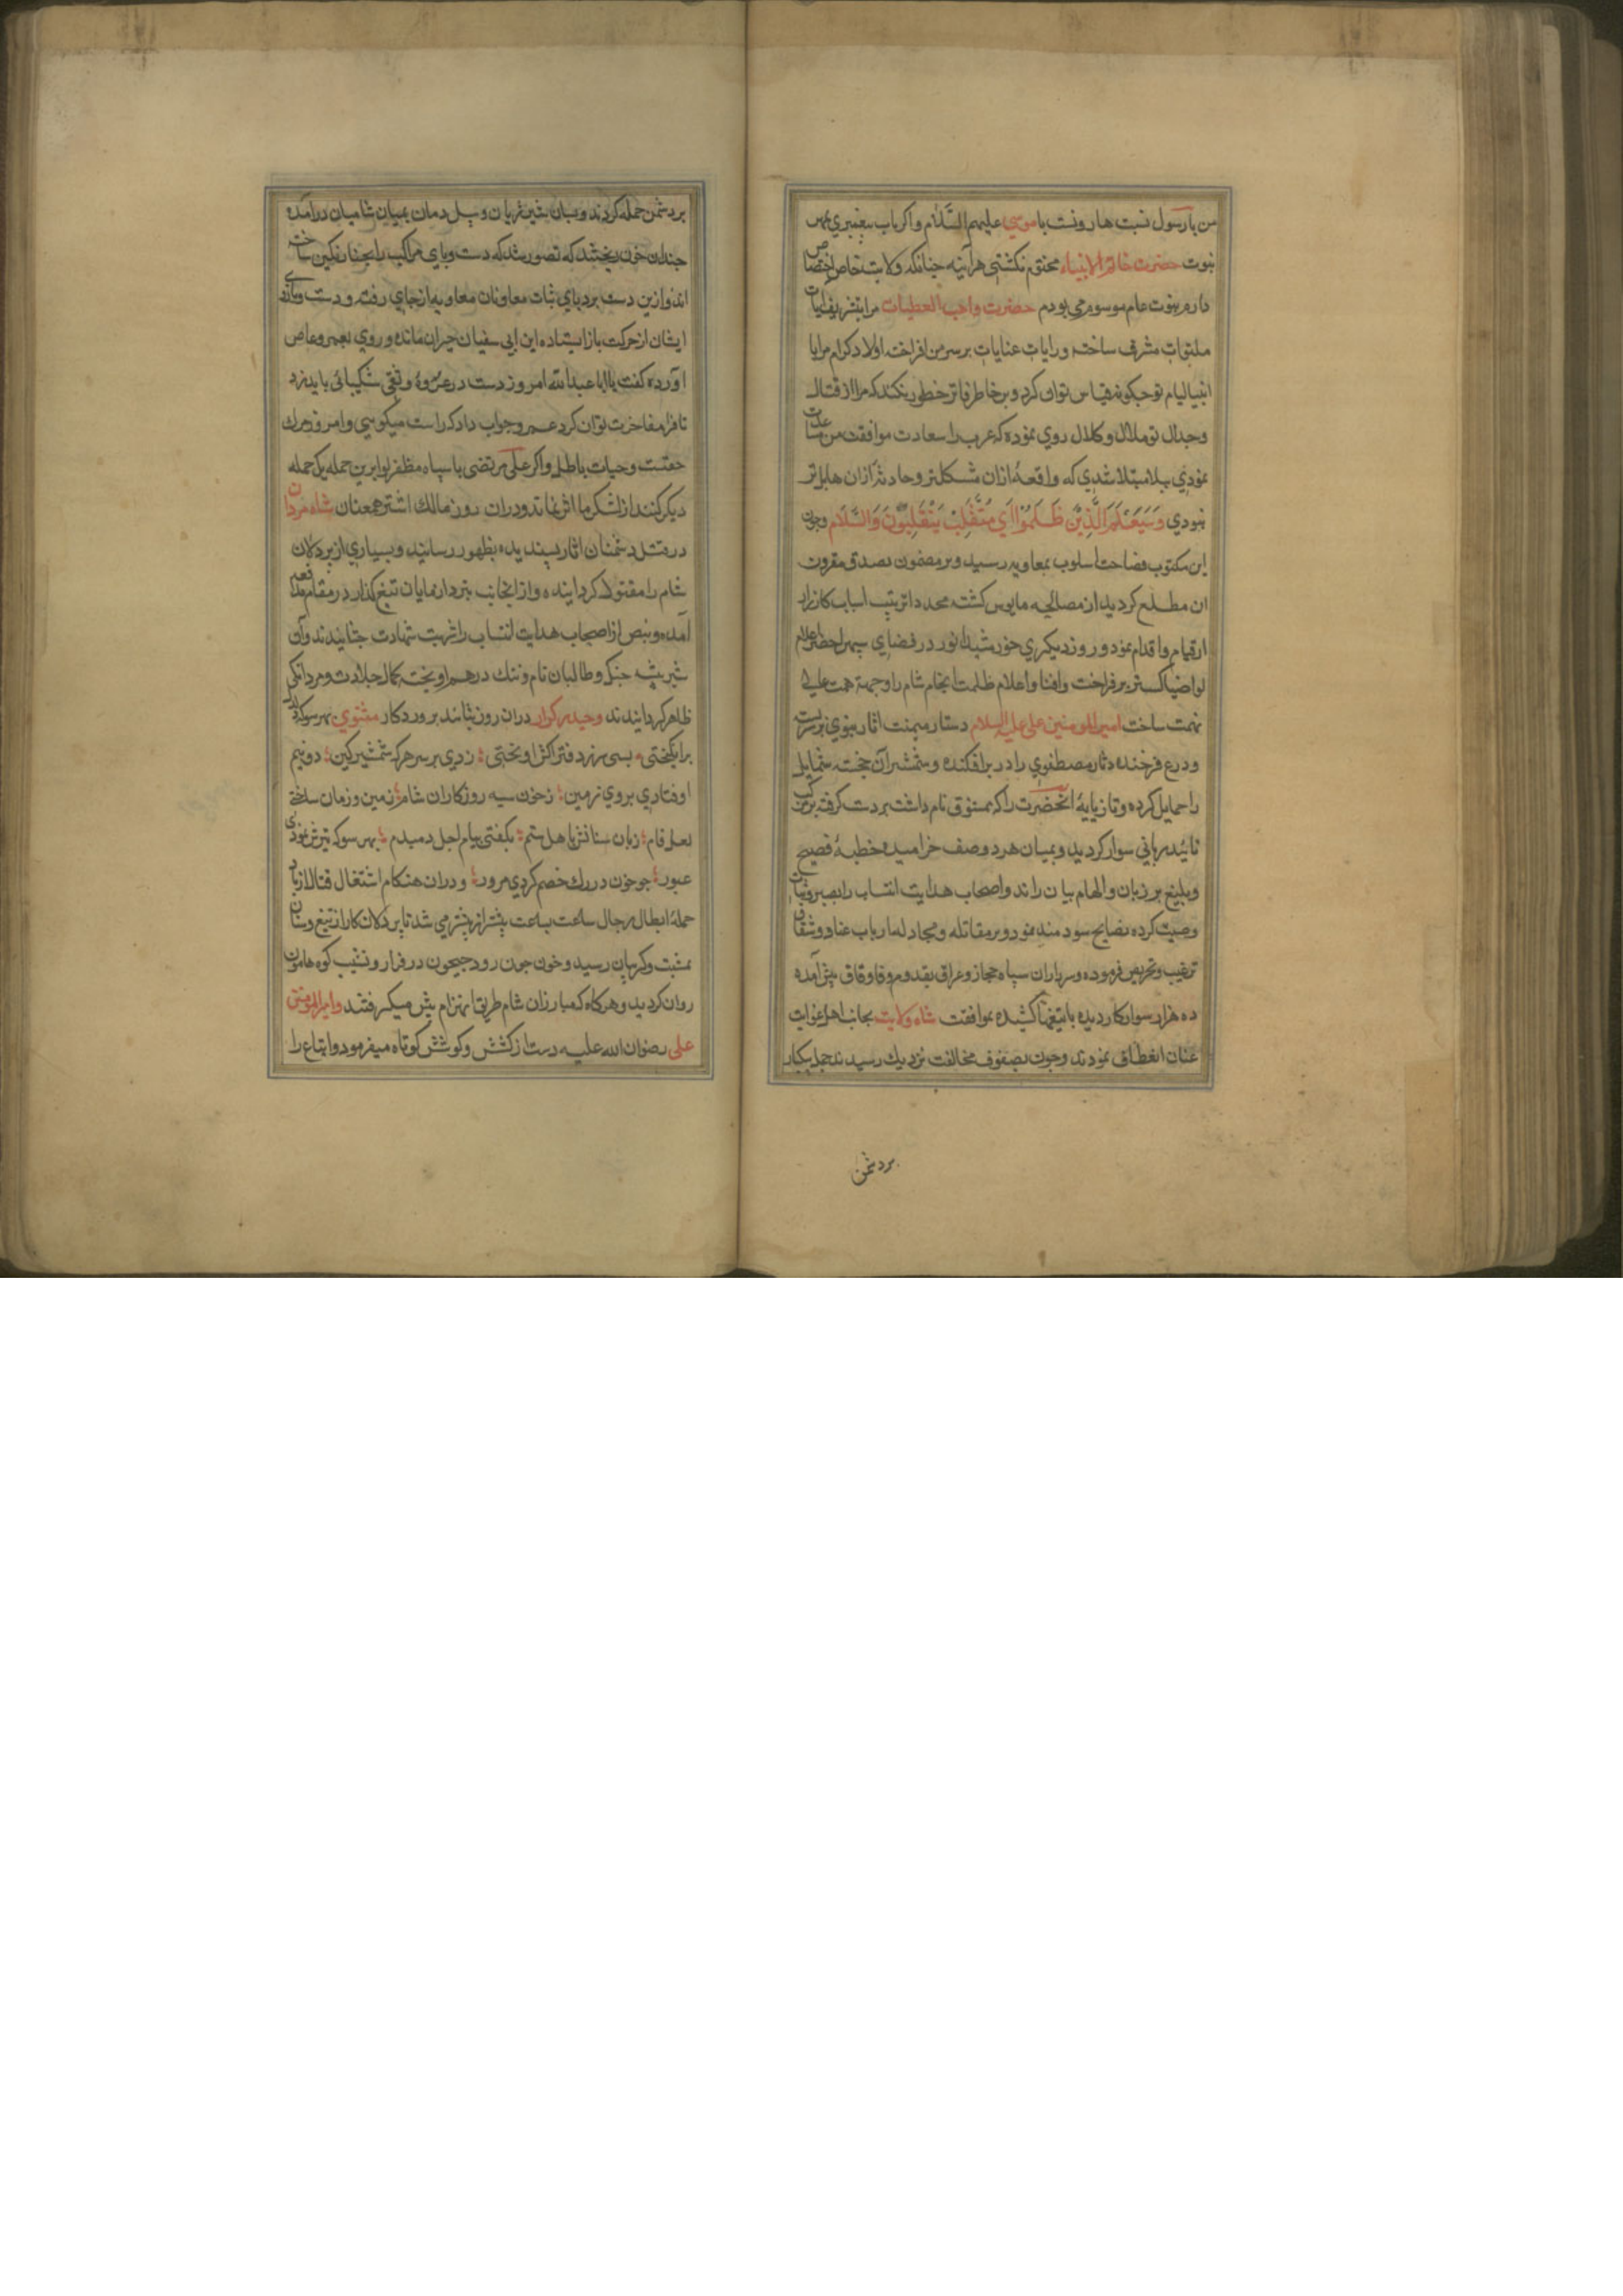 من با رسول نسبت هارونست با موسی علیهم السَّلام واکر باب پیغمبري بمهر
نبوت حضرت خاتم الانبیاء مختتم نکشتی هرآینه جنانکه ولایت خاص اختصاص
دارم بنبوت عام موسوم می بودم حضرت واجب العطیات مرا بتشریف
مشرف ساخته ورایات عنایات برسر من افراخته اولاد کرام مرا با
توجکونه قیاس توان کرد وبر خاطر فاتر خطور نکند که مرا از قتال
وجدال تو ملال وکلال روي نموده که عرب را سعادت موافقت من مساعدت
نمودي ببلا مبتلا شدي که واقعهٔ ازان مشکلتر وحادثهٔ ازان هایل تر
نبودي وَسَيَعْلَمُ الَّذِيْنَ ظَلَمُوْا اَيَّ مُنْقَلِبٍ يَنْقَلِبُوْنَ وَالسَّلَام وجون
این مکتوب فصاحت اسلوب بمعاویه رسید وبر مضمون صدق مقرون
ان مطلع کردید از مصالحه مایوس کشته مجددا ترتیب اسباب کارزار
قیام واقدام نمود وروز دیکر خورشید انور در فضاي سپهر اخضر اعلام
لواء ضیاکستر برفراخت وافنا واعلام ظلمت انجام شام را وجهه همت عالی
نهمت ساخت امیرالمومنین علی علیه السلام دستار میمنت اثار نبوي برسر بست
ودرع فرخنده دثار مصطفوي را در بر افکنده وشمشیر آن خجسته شمایل
را حمایل کرده وتازیانهٔ انحضرت را که ممشوق نام داشت بردست کرفته بر مرکب
تائید ربانی سوار کردید وبمیان هردو صف خرامیده خطبهٔ فصیح
وبلیغ بر زبان والهام بیان راند واصحاب هدایت انتساب را بصبر وثبات
وصیت کرده نصایح سودمند نمود وبر مقاتله ومجادله ارباب عناد وشقاق
ترغیب وتحریص فرموده وسرباران سپاه حجاز وعراق بقدوم وفا وفاق پیش آمده
ده هزار سوار کاردیده باتیغها کشیده بموافقت شاه ولایت بجانب اهل غوایت
عنان انعطاف نمودند وجون بصفوف مخالفت نزدیك رسیدند جمله بیکبار
بردشمن
بردشمن حمله کردند وبسان شیر ژیان وپیل دمان بمیان شامیان درآمده
جندان خون ریختند که تصور شد که دست وپاي مراکب را بحنا رنکین ساخته
اند وازین دست برد پاي ثبات معاونان معاویه از جاي رفته ودست وبازو
ایشان از حرکت باز ایستاده ابن ابی سفیان حیران مانده وروي بعمرو عاص
اورده کفت یا اباعبدالله امروز دست در عروهٔ وثقی شکیبائی باید زد
تا فردا مفاخرت توان کرد عمرو جواب داد که راست میکوئي وامروز مرك
حقست وحیات باطل واکر علی مرتضی با سپاه مظفر لوا برین حمله یك حمله
دیکر کنند از لشکر ما اثر نماند ودران روز مالك اشتر همعنان شاه مردان
در قتل دشمنان اثار پسندیده بظهور رسانید وبسیاري از پردلان
شام را مقتول کردانیده وازانجانب نیز دار نمایان تیغ کذار در مقام مدافعه
آمده وبعض از اصحاب هدایت انتساب را شربت شهادت جشانیدند وآن
شیر بیشه جنک وطالبان نام وننك درهم اویخته کمال جلادت ومردانکی
ظاهر کردانیدند وحیدر کرار دران روز بتائید پروردکار مثنوي بهر سو که
برانکیختی ؞ بسی سر زد فتراکش اویختی ؛ زدي بر سر هر که شمشیر کین ؛ دو نیم
اوفتادي بروي زمین ؛ زخون سیه روزکاران شام ؛ زمین وزمان ساختی
لعل فام ؛ زبان سنانش با اهل ستم ؛ بکفتی پیام اجل دمبدم ؛ بهر سو که تیرش نمودی
عبور ؛ جو خون در رك خصم کردي مرور ؛ ودران هنکام اشتغال قتال از باد
حملهٔ ابطال رجال ساعت بساعت بیشتر از پیشتر می شد تا پردلان کار از تیغ وسنان
بمشت وکریبان رسید وخون جون رود جیحون در فراز ونشیب کوه هامون
روان کردید وهرکاه که مبارزان شام طریق انهزام پیش میکرفتند وامیرالمومنین
علی رضوان الله علیه دست از کشش وکوشش کوتاه میفرمود واتباع را